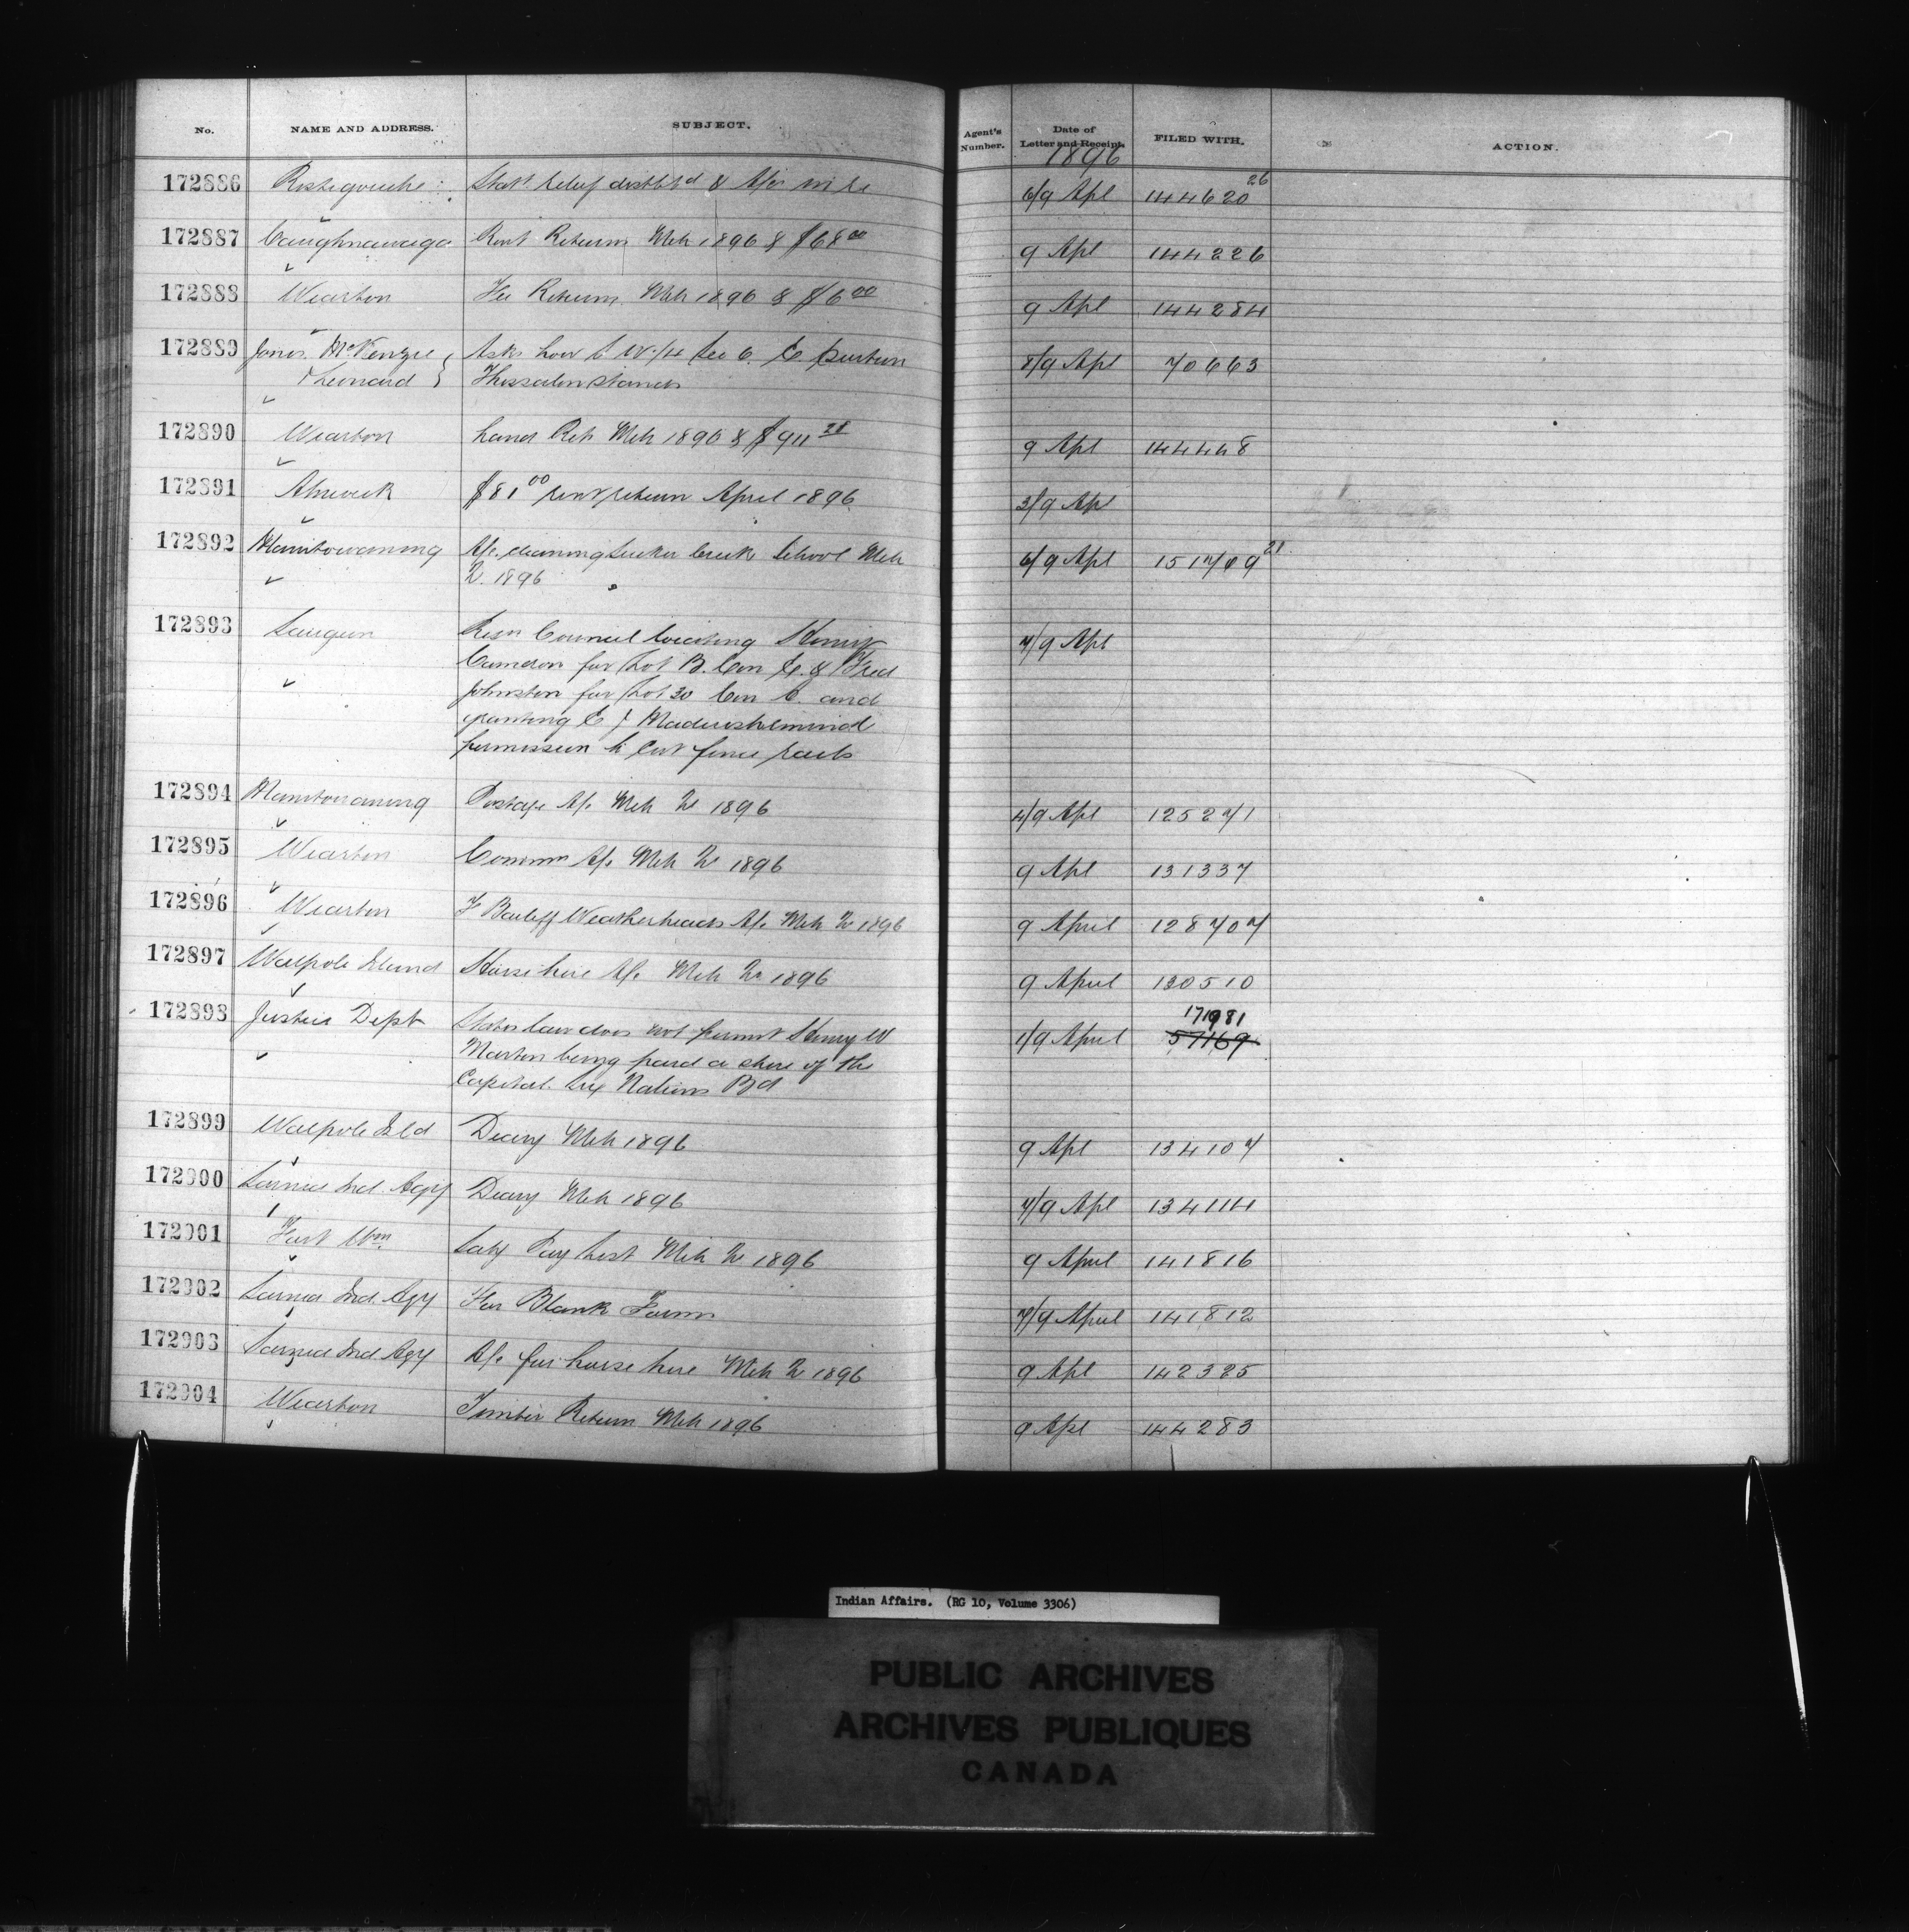 No. NAME AND ADDRESS. SUBJECT. Agent's Number. Date of Letter and Receipt. FILED WITH. ACTION.
1896
172886 Restigouche Stat relief distbtd & A/cs in re 6/9 Apl 144620 26
172887 Caughnawaga Rent Return Mch 1896 & $68 00 9 Apl 144226
172888 Wiarton Fee Return Mch 1896 & $6 00 9 Apl 144284
172889 Jones McKenzie Asks how 6. 8/9 Apl 70663
& Leonard Thessalon stands
172890 Wiarton Land Ret Mch 1896 & $911 28 9 Apl 144468
172891 Alnwick $81 00 rent return April 1896 3/9 Apl
172892 Manitowaning A/c. cleaning Sucker Creek School Mch 6/9 Apl 151769 21
Qr. 1896
172893 Saugeen Resn Council locating Henry 7/9 Apl
Cameron for Lot B. Con & Fred
Johnston for Lot 30 Con and
granting
permission to cut fence rails
172894 Manitowaning Postage A/c Mch Qr 1896 4/9 Apl 125271
172895 Wiarton Commn A/c Mch Qr 1896 9 Apl 131337
172896 Wiarton F Bailiff Weatherheads A/c Mch Qr 1896 9 April 128707
172897 Walpole Island Horse hire A/c Mch Qr 1896 9 April 130510
172898 Justice Dept States law does not permit Henry W 1/9 April 171981 57169
Martin being paid a share of the
Capital Six Nations Bd
172899 Walpole Isld Diary Mch 1896 9 Apl 134107
172900 Sarnia Ind. Agy Diary Mch 1896 7/9 Apl 134114
172901 Fort Wm Saly Pay List Mch Qr 1896 9 April 141816
172902 Sarnia Ind. Agy For Blank Forms 7/9 April 141812
172903 Sarnia Ind. Agy A/c for horse hire Mch Qr 1896 9 Apl 142325
172904 Wiarton Timber Return Mch 1896 9 Apl 144283
Indian Affairs. (RG 10, Volume 3306)
PUBLIC ARCHIVES
ARCHIVES PUBLIQUES
CANADA